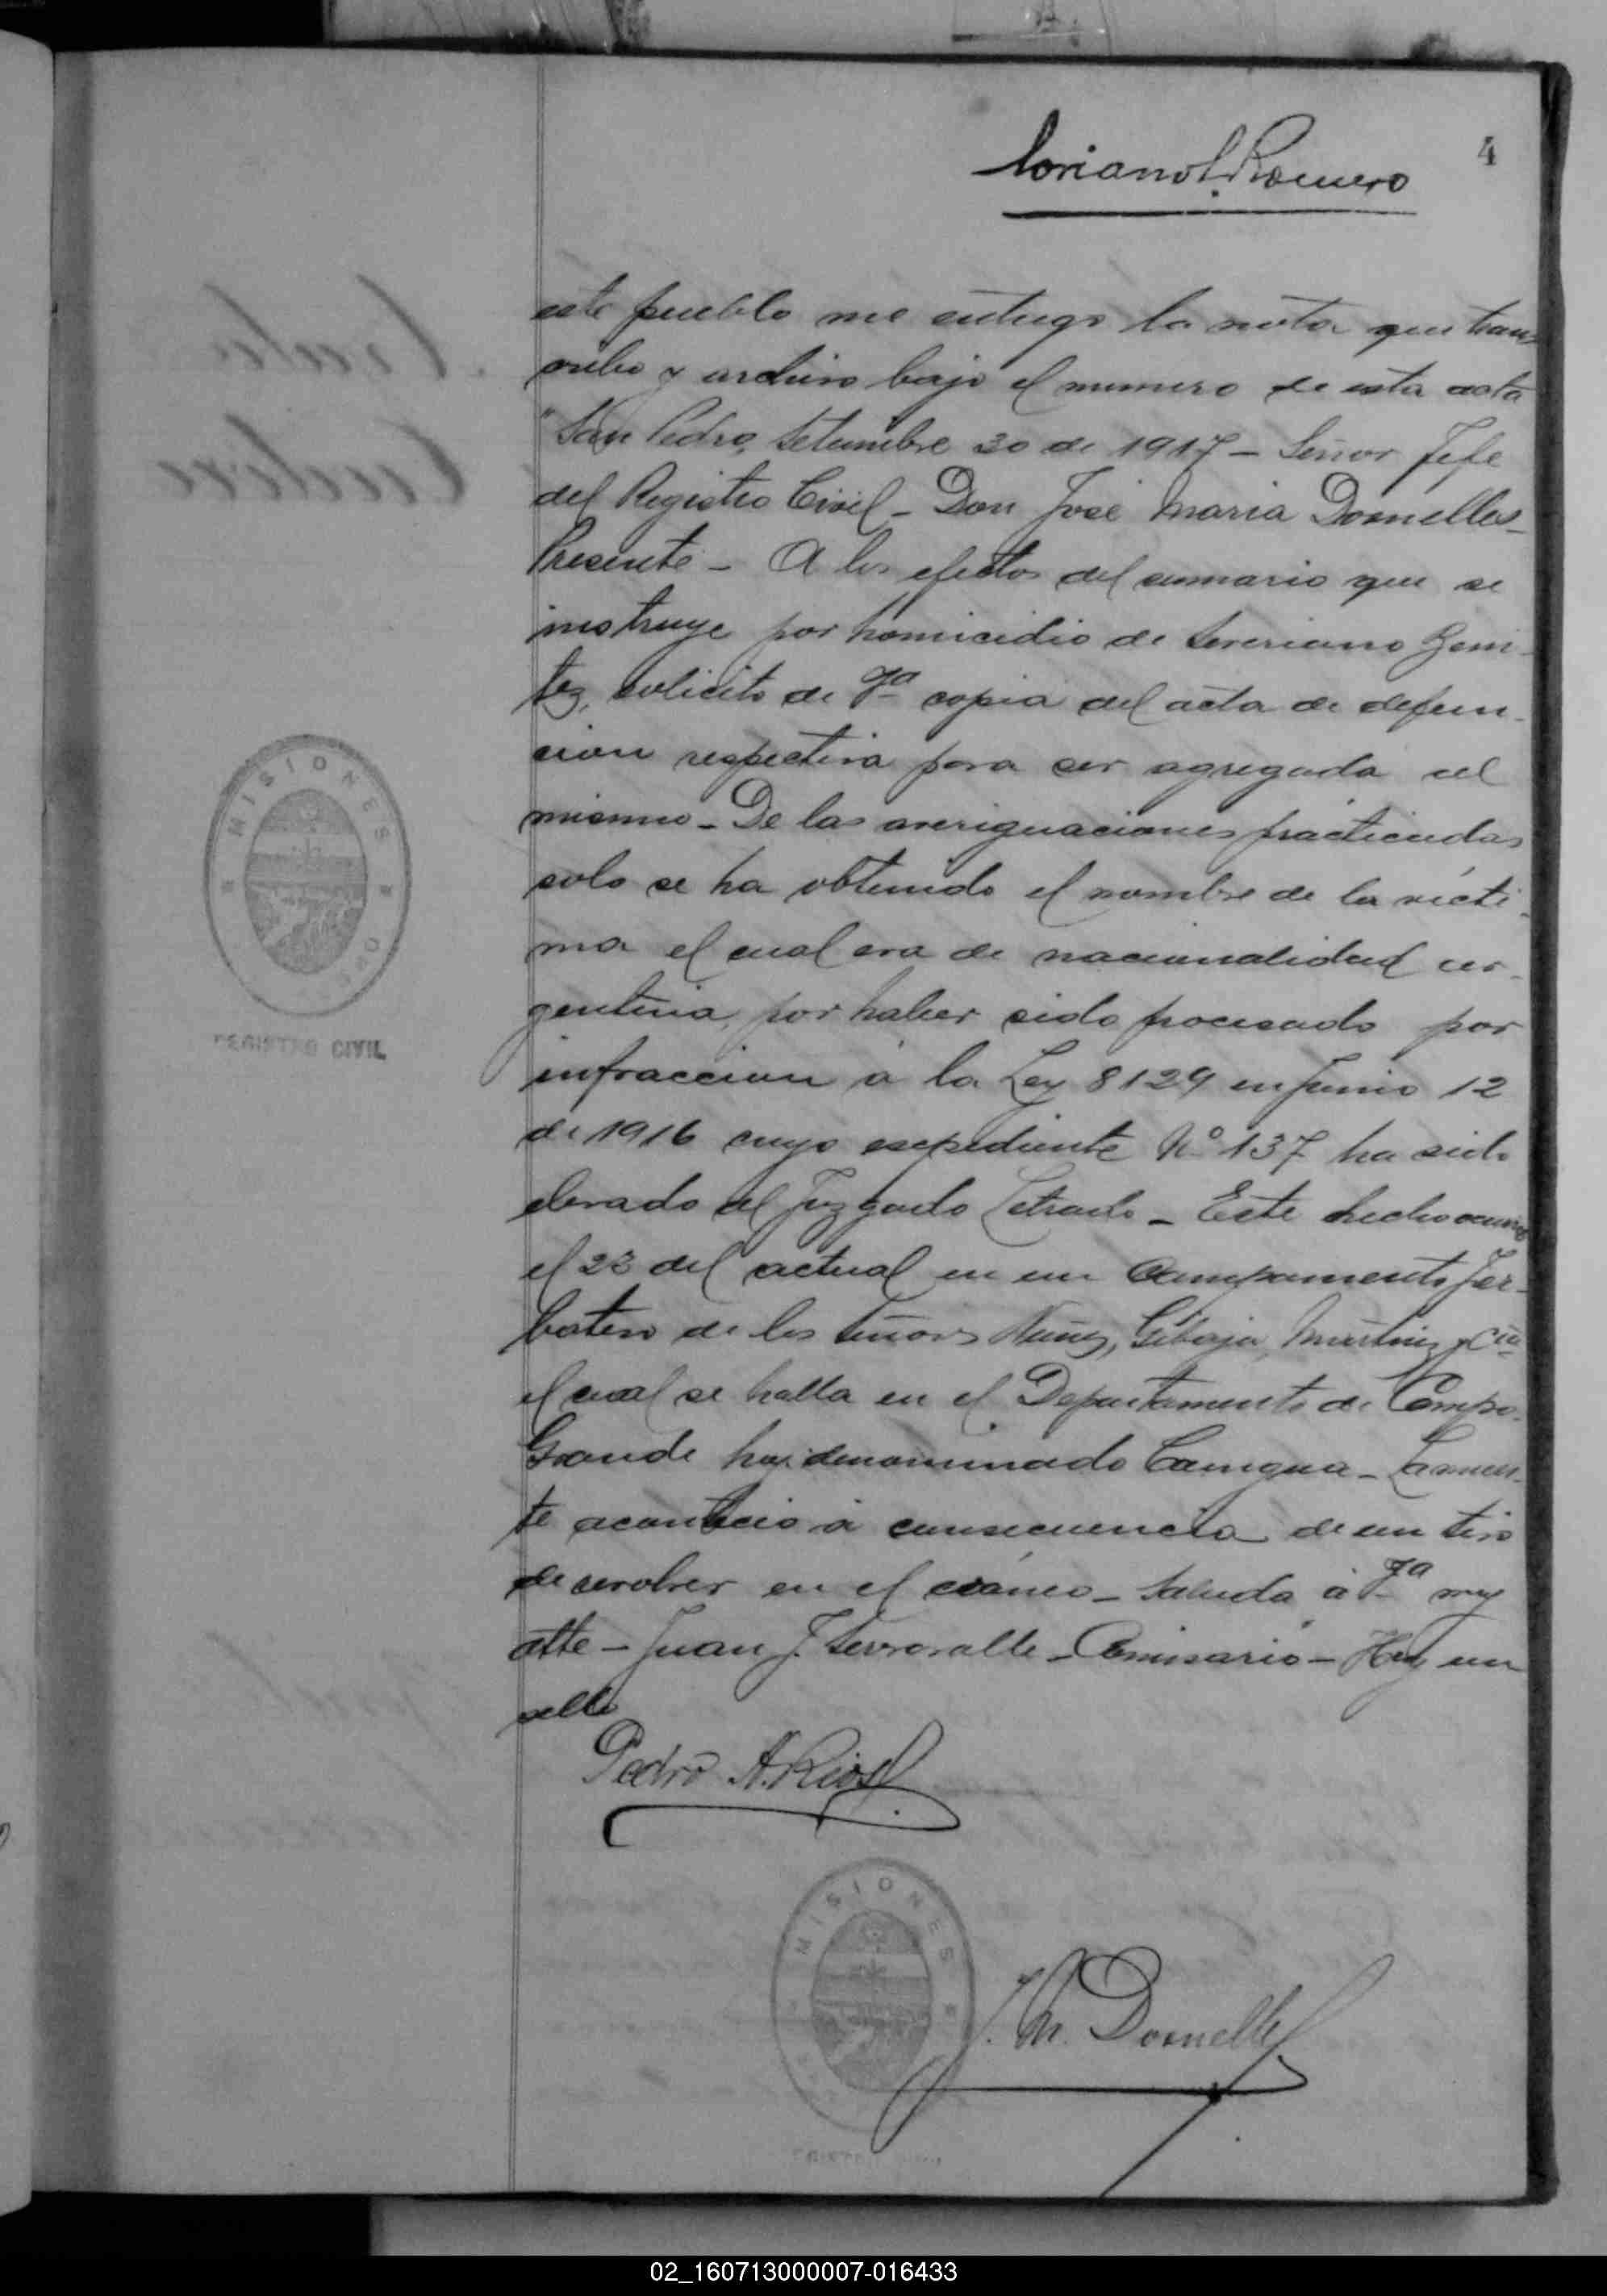 4
Coriano L. Romero
este pueblo me entrego la nota que trans-
cribo y archivo bajo el numero de esta acta
"San Pedro, Setiembre 30 de 1917 - Señor Jefe
del Registro Civil - Don José Maria Dornelles -
Presente - A los efectos del sumario que se
instruye por homicidio de Severiano
solicito de Va copia del acta de defun-
cion respectiva para ser agregada al
mismo - De las averiguaciones practicadas
solo se ha obtenido el nombre de la victi-
ma el cual era de nacionalidad ar-
gentina, por haber sido procesado por
infraccion á la Ley 8129 en Junio 12
de 1916 cuyo expediente No 137 ha sido
elevado al Juzgado Letrado - Este hecho ocurrió
el 23 del actual en un Campamento Yer-
batero de los Señores Nuñez, Gibaja, Martinez y Cia
el cual se halla en el Departamento de Campo-
Grande hoy denominado Caingua - La muer-
te acontecio á consecuencia de un tiro
de revolver en el cráneo - Saluda á Va muy
atte - Juan J. - Comisario - Hay un
sello
Pedro A. Rios
MISIONES
REGISTRO CIVIL
MISIONES
J. M. Dornelles
02_160713000007-016433